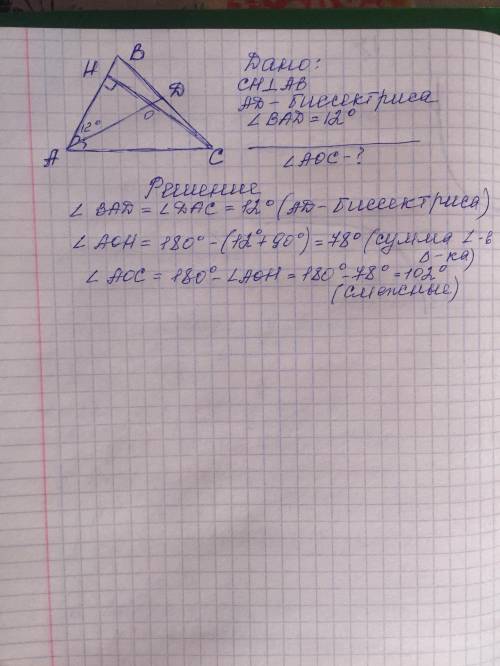 В
Н
D
12°
О
А
С
Дано:
CH⊥AB
AD - биссектриса
∠ BAD = 12°
∠AOC - ?
Решение
∠ BAD = ∠DAC = 12° (AD - биссектриса)
∠ AOH = 180° - (12° + 90°) = 78° (сумма ∠-в
Δ-ка)
∠ AOC = 180° - ∠AOH = 180° - 78° = 102°
(смежные)